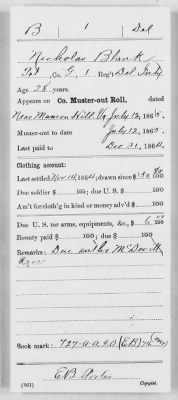 B 1 Del
Nicholas Blank
Co. G, 1 Reg't Del. Inf'y.
Age 28 years.
Appears on Co. Muster-out Roll, dated
Near Munson Hill, Va, July 12, 1865.
Muster-out to date July 12, 1865.
Last paid to Dec. 31, 1864.
Clothing account:
Last settled 186 ; drawn since $ 100
Due soldier $ 100; due U. S. $ 100
Am't for cloth'g in kind or money adv'd $ 100
Due U. S. for arms, equipments, &c., $ 6 100
Bounty paid $ 100; due $ 100
Remarks: Due sutler
Book mark:
(361) Copyist.